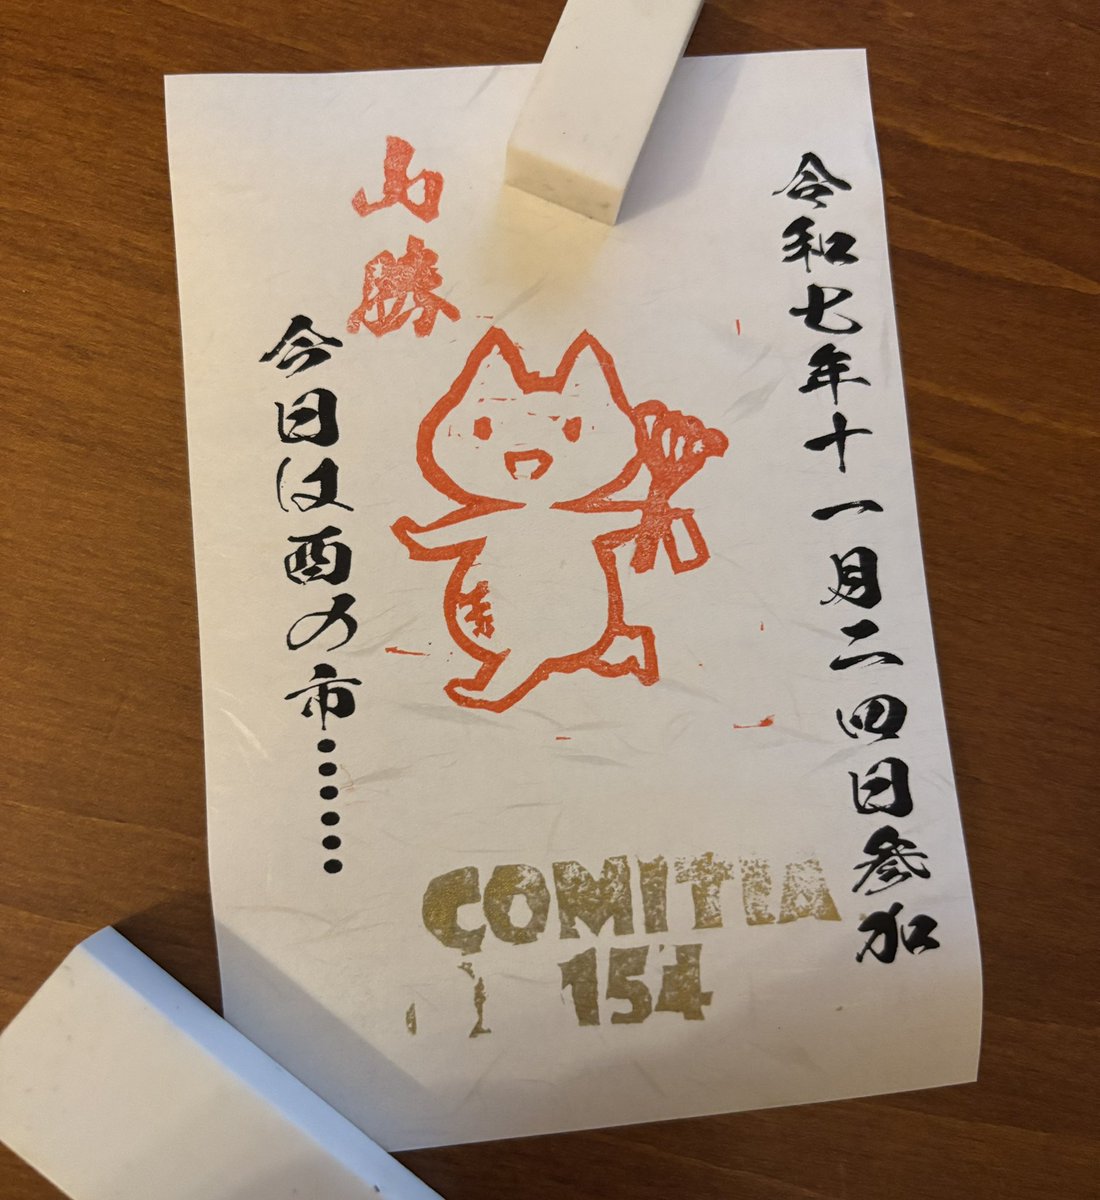 令和七年十一月二四日参加
山勝
今日は酉の市……
COMITIA
154